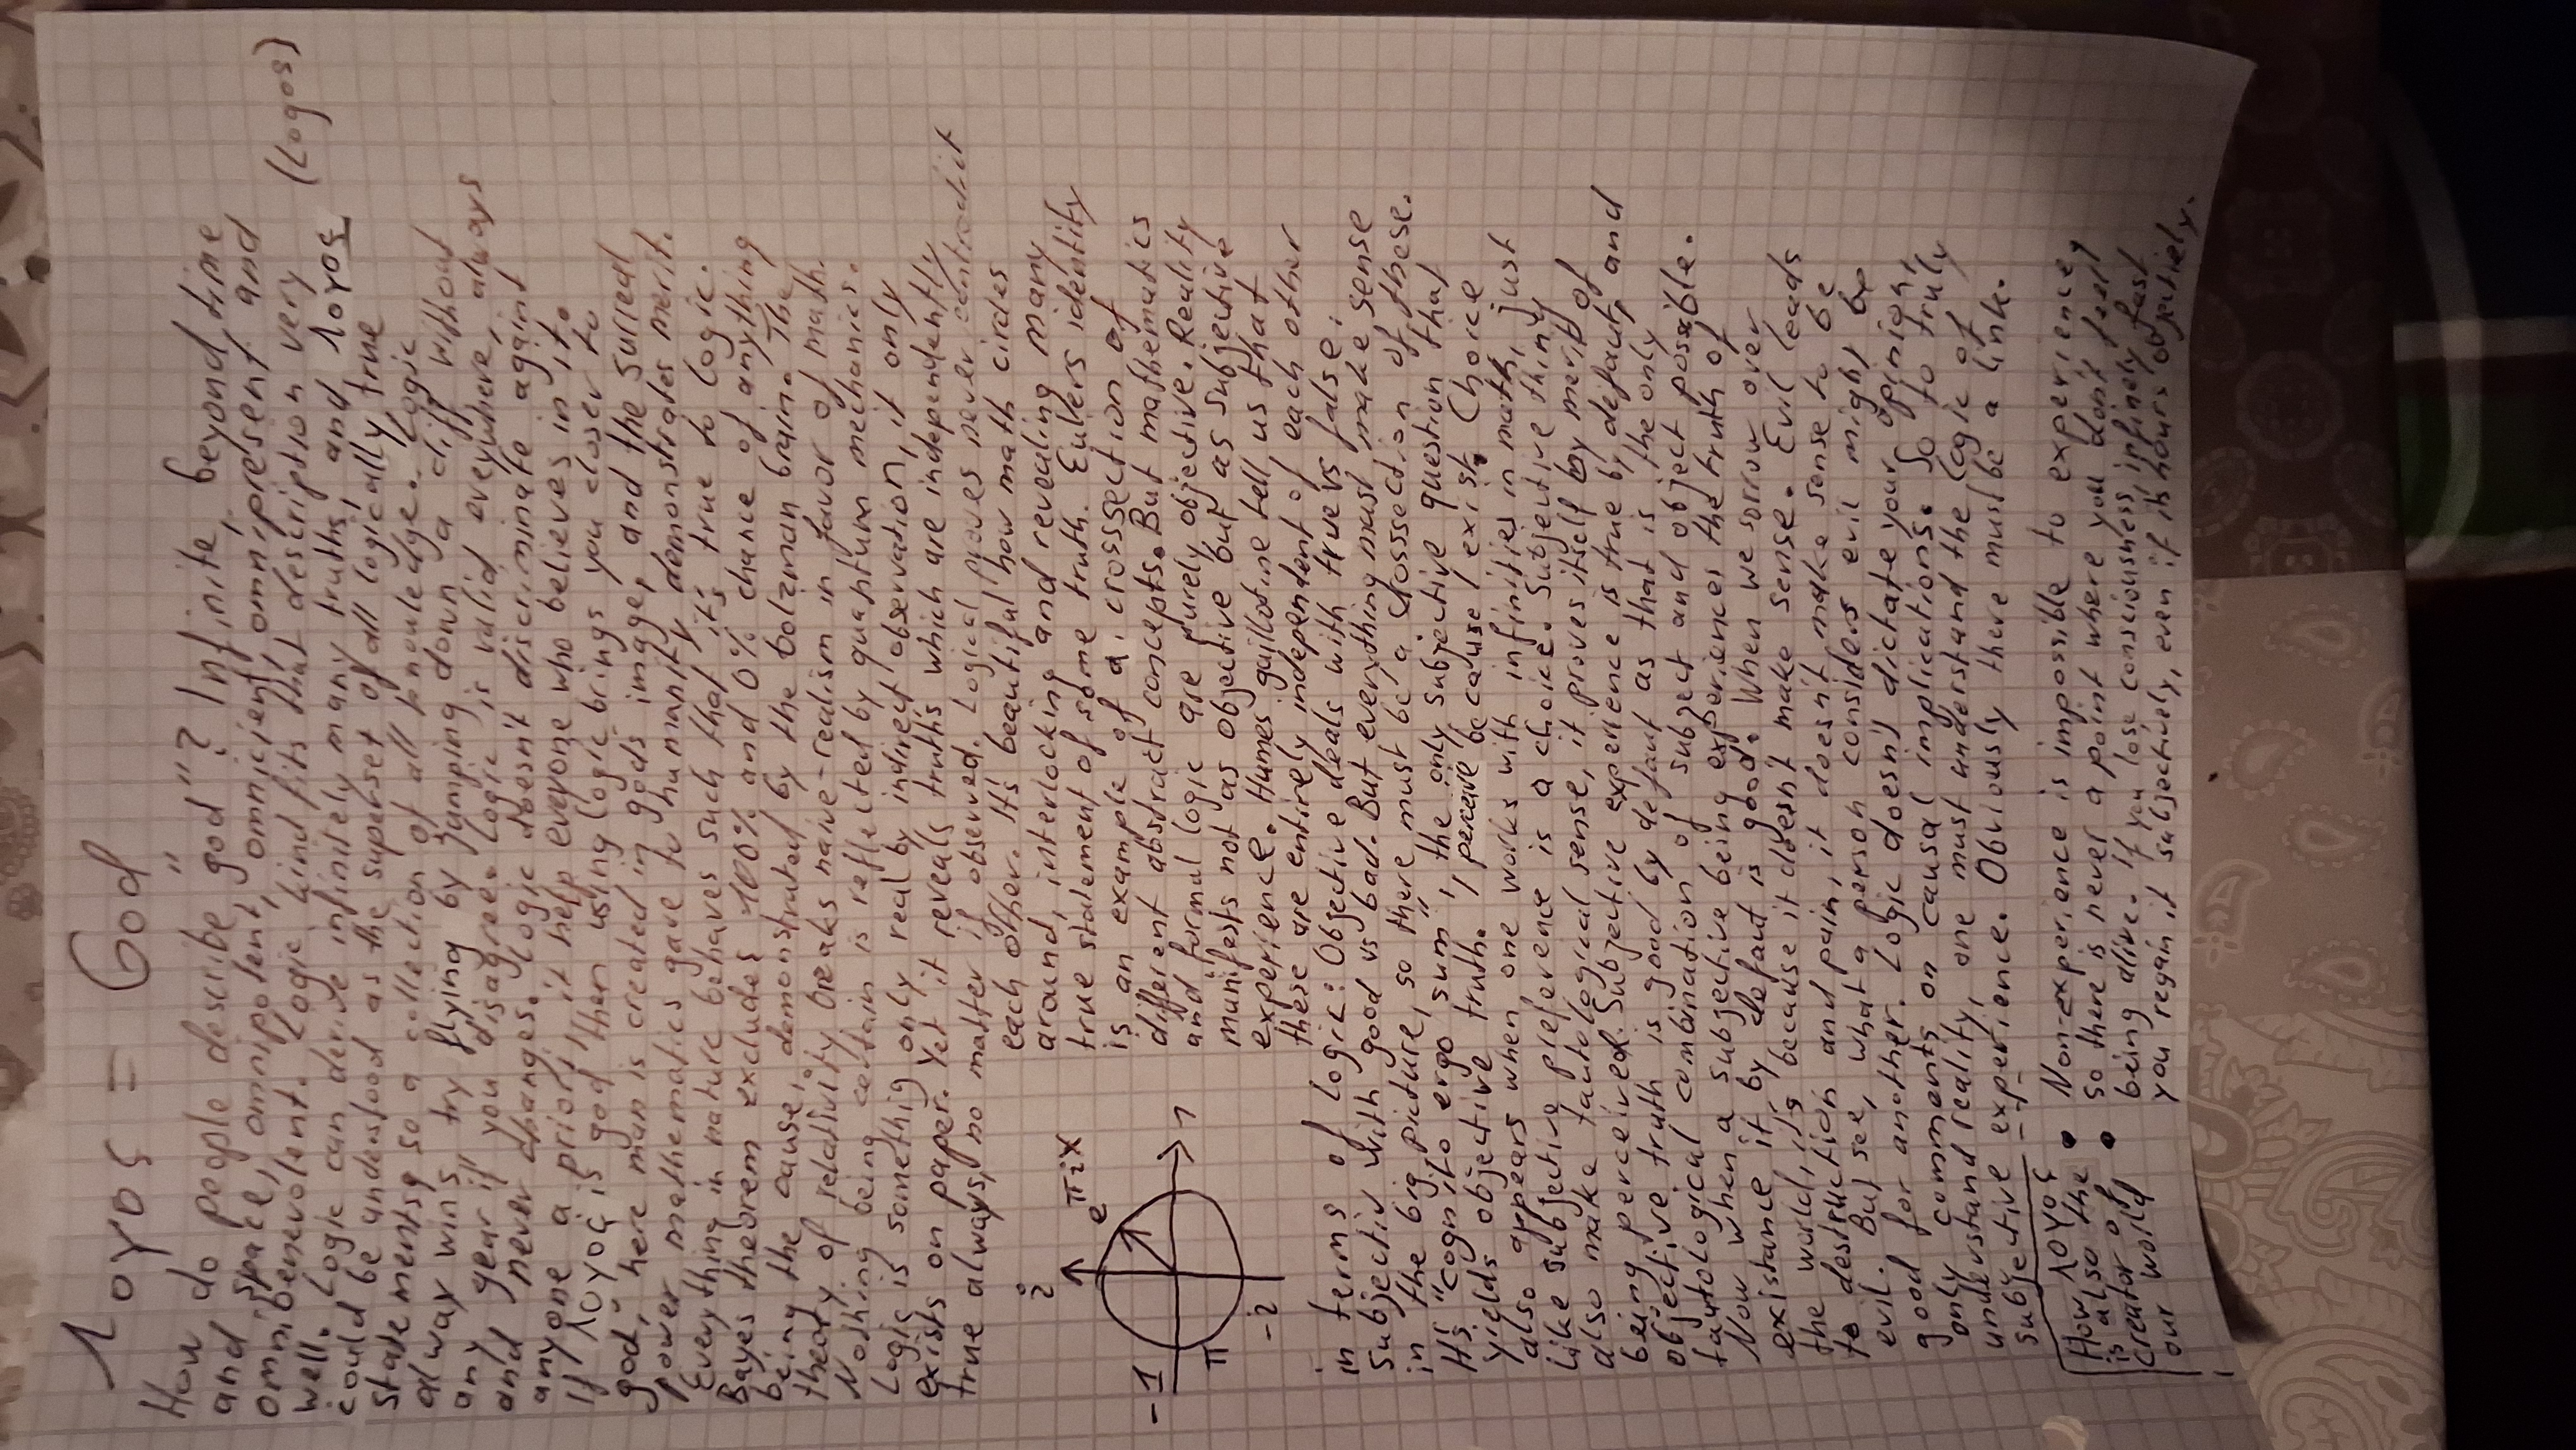 λογος = God
How do people describe "god"? Infinite, beyond time
and space, omnipotent, omnicient, omnipresent and
omnibenevolent. Logic kind fits that description very (Logos)
well. Logic can derive infinitely many truths, and λογος
could be understood as the superset of all logically true
statements, so a collection of all knowledge. Logic
alway wins, try flying by jumping down a cliff without
any gear if you disagree. Logic is valid everywhere, always
and never changes. Logic doesn't discriminate against
anyone a priori, it help eveyone who believes in it.
If λογος is god then using logic brings you closer to
god, here man is created in gods image, and the surreal
power mathematics gave to humanity demonstrates merit.
Everything in nature behaves such that it's true to logic.
Bayes theorem excludes 100% and 0% chance of anything
being the cause, demonstrated by the bolzman brain. The
theory of relativity breaks naive-realism in favor of math.
Nothing being certain is reflected by quantum mechanics.
Logic is something only real by indirect observation, it only
exists on paper. Yet it reveals truths which are independently
true always, no matter if observed. Logical proves never contradict
each other. It's beautiful how math circles
around, interlocking and revealing many
true statement of some truth. Eulers identity
is an example of a crossection of
different abstract concepts. But mathematics
and formal logic are purely objective. Reality
manifests not as objective but as subjective
experience. Humes gaillotine tell us that
these are entirely independent of each other
i
e^πix
-1
1
π
-i
in terms of logic: Objective deals with true vs false;
subjectiv with good vs bad. But everything must make sense
in the big picture, so there must be a crossection of these.
It's "cognito ergo sum", the only subjective question that
yields objective truth. "I perceive because I exist. Choice
also appears when one works with infinities in math, just
like subjective preference is a choice. Subjective thiny
also make tautological sense, it proves itself by merit of
being perceived. Subjective experience is true by default, and
objective truth is good by defaut as that is the only
tautological combination of subject and object possible.
Now when a subjective being experiences the truth of
existance it by defaut is good. When we sorrow over
the world, it's because it doesn't make sense. Evil leads
to destruction and pain, it doesn't make sense to be
evil. But see, what a person considers evil might be
good for another. Logic doesn't dictate your opinion,
only comments on causal implications. So to truly
understand reality, one must understand the logic of
subjective experience. Obviously there must be a link.
How λογος
is also the
creator of
our world
• Non-experience is impossible to experience,
so there is never a point where you don't feel
• being alive. If you lose consciousness infinely fast
you regain it subjectively, even if it's hours objectively.